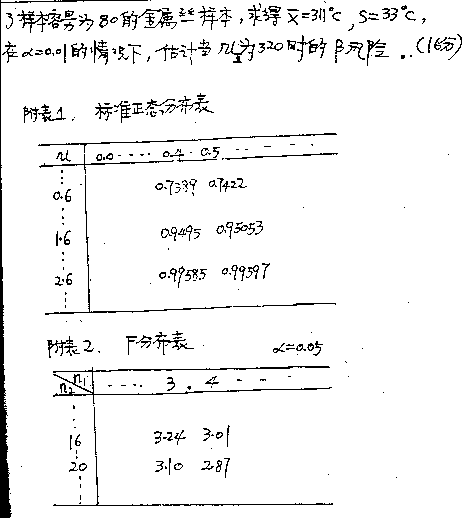 3样本容易为80的金属丝样本，求得 x̄=311℃，S=33℃，
在α=0.01的情况下，估计当μ为320时的β风险．(16分)
附表1．标准正态分布表
u 0.0 ···· 0.4 0.5 - - - -
0.6 0.7389 0.7422
1.6 0.9495 0.95053
2.6 0.99585 0.99597
附表2． F分布表 α=0.05
n₂ n₁ ···· 3 . 4 - - -
16 3.24 3.01
20 3.10 2.87